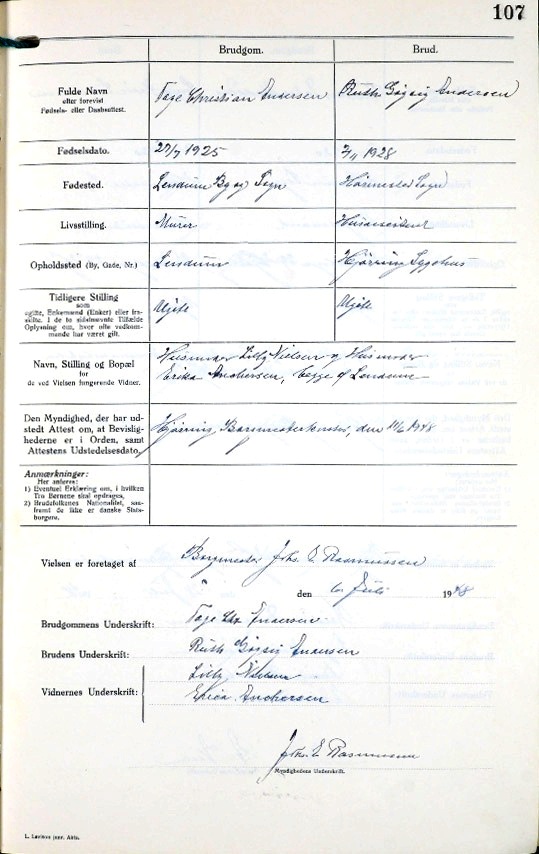 107
Brudgom. Brud.
Fulde Navn
efter forevist
Fødsels- eller Daabsattest.
Tage Christian Andersen Ruth Andersen
Fødselsdato. 27/7 1925 1928
Fødested. Lendum By og Sogn Hørmested Sogn
Livsstilling. Murer Husassistent
Opholdssted (By, Gade, Nr.) Lendum Hjørring Sygehus
Tidligere Stilling
som
ugifte, Enkemænd (Enker) eller fra-
skilte. I de to sidstnævnte Tilfælde
Oplysning om, hvor ofte vedkom-
mende har været gift.
Ugift Ugift
Navn, Stilling og Bopæl
for
de ved Vielsen fungerende Vidner.
Husmoder Lilly Nielsen og Husmoder
Erika Andersen, begge af Lendum
Den Myndighed, der har ud-
stedt Attest om, at Bevislig-
hederne er i Orden, samt
Attestens Udstedelsesdato.
Hjørring Borgmesterkontor, den 11/6 1948
Anmærkninger:
Her anføres:
1) Eventuel Erklæring om, i hvilken
Tro Børnene skal opdrages,
2) Brudefolkenes Nationalitet, saa-
fremt de ikke er danske Stats-
borgere.
Vielsen er foretaget af Borgmester Johs. E. Rasmussen
" den 6. Juli 1948
Brudgommens Underskrift: Tage Chr Andersen
Brudens Underskrift: Ruth Andersen
Vidnernes Underskrift: Lilly Nielsen
Erica Andersen
Johs. E. Rasmussen
Myndighedens Underskrift.
L. Levison junr. Akts.